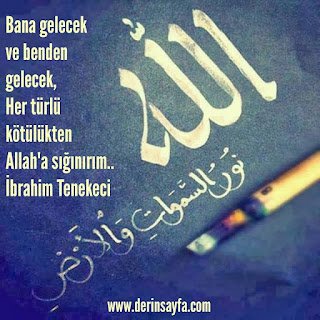 Bana gelecek
ve benden
gelecek,
Her türlü
kötülükten
Allah'a sığınırım..
İbrahim Tenekeci
الله
نور السموات والأرض
www.derinsayfa.com